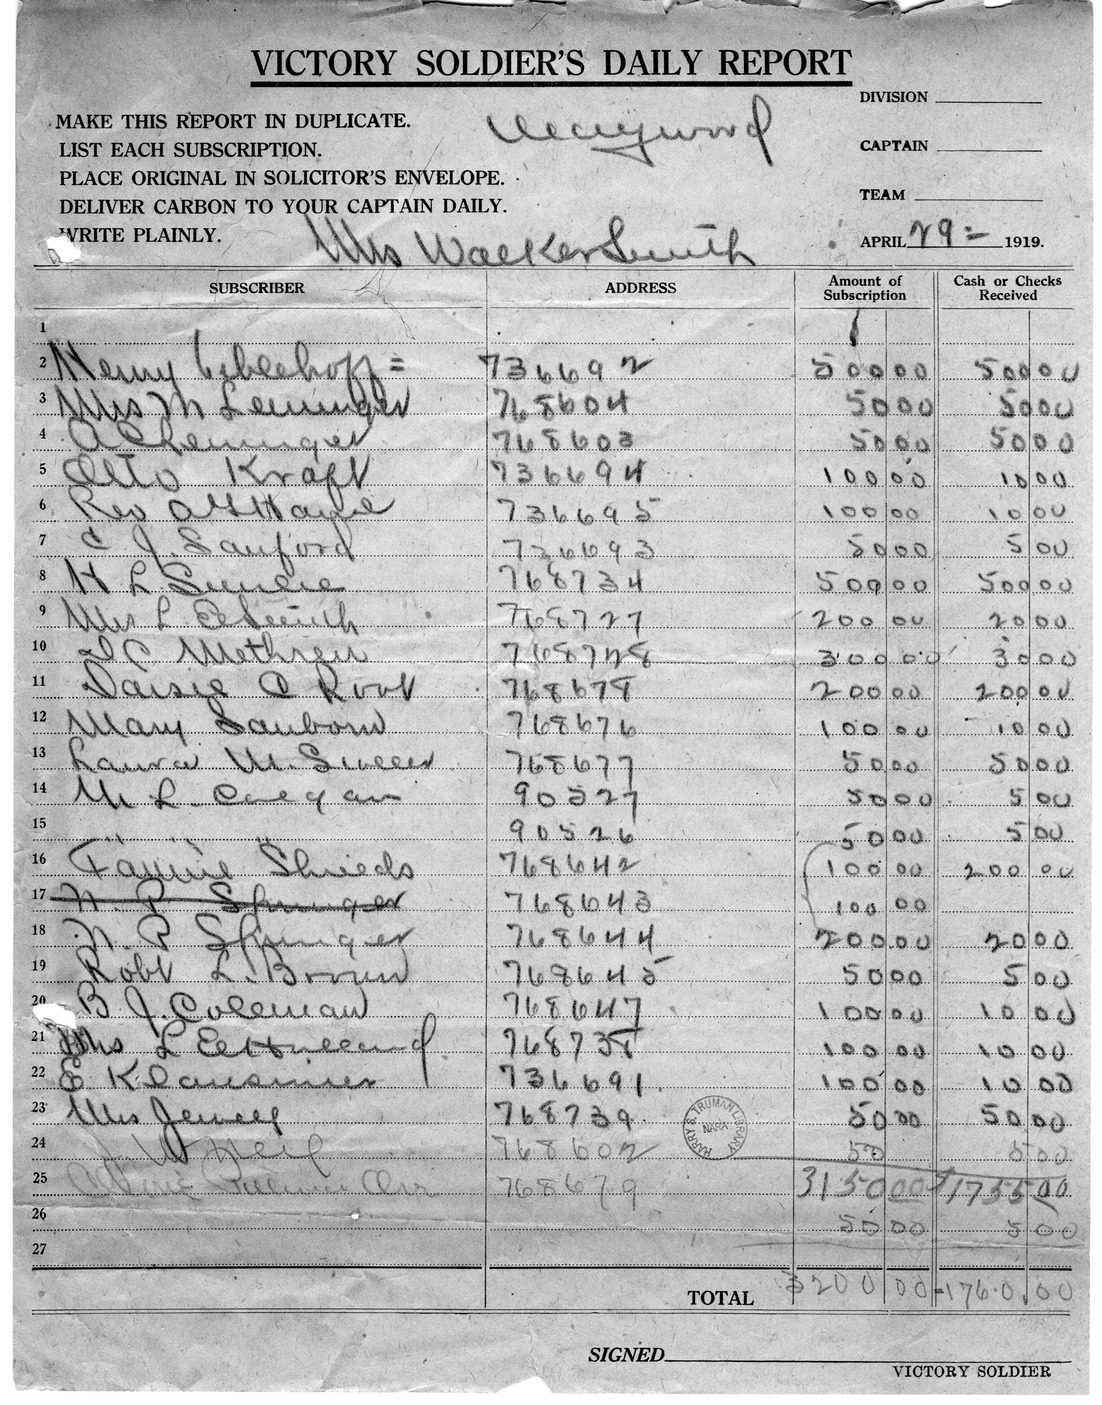 VICTORY SOLDIER'S DAILY REPORT
MAKE THIS REPORT IN DUPLICATE.
LIST EACH SUBSCRIPTION.
PLACE ORIGINAL IN SOLICITOR'S ENVELOPE.
DELIVER CARBON TO YOUR CAPTAIN DAILY.
WRITE PLAINLY.
Maywood
Mrs Walker Smith
DIVISION
CAPTAIN
TEAM
APRIL 29 = 1919.
SUBSCRIBER ADDRESS Amount of Subscription Cash or Checks Received
1
2 Henry = 736692 500 00 500 00
3 Mrs M Leninger 768604 50 00 50 00
4 A C Leninger 768603 50 00 50 00
5 Otto Kraft 736694 100 00 10 00
6 Rev 736695 100 00 10 00
7 C J. Sanford 736693 50 00 5 00
8 H L 768734 500 00 500 00
9 Mrs L E Smith 768727 200 00 20 00
10 Methren 768728 300 00 30 00
11 Daisie C Root 768678 200 00 200 00
12 Mary Sanborn 768676 100 00 10 00
13 Laura M. 768677 50 00 50 00
14 M. L. 90527 50 00 5 00
15 " " " 90526 50 00 5 00
16 Fannie Shields 768642 100 00 200 00
17 N. P. Springer 768643 100 00
18 N. P Springer 768644 200 00 20 00
19 Robt L. Brown 768645 50 00 5 00
20 B J. Coleman 768647 100 00 10 00
21 Mrs L E Holland 768738 100 00 10 00
22 E Klausmier 736691. 100 00 10 00
23 Mrs Jewell 768739 50 00 50 00
24 J W Neil 768602 50 5 00
25 768679 3150 00 $1755 00
26 50 00 5 00
27
TOTAL 3200 00 1760.00
SIGNED
VICTORY SOLDIER
HARRY S. TRUMAN LIBRARY
NARA